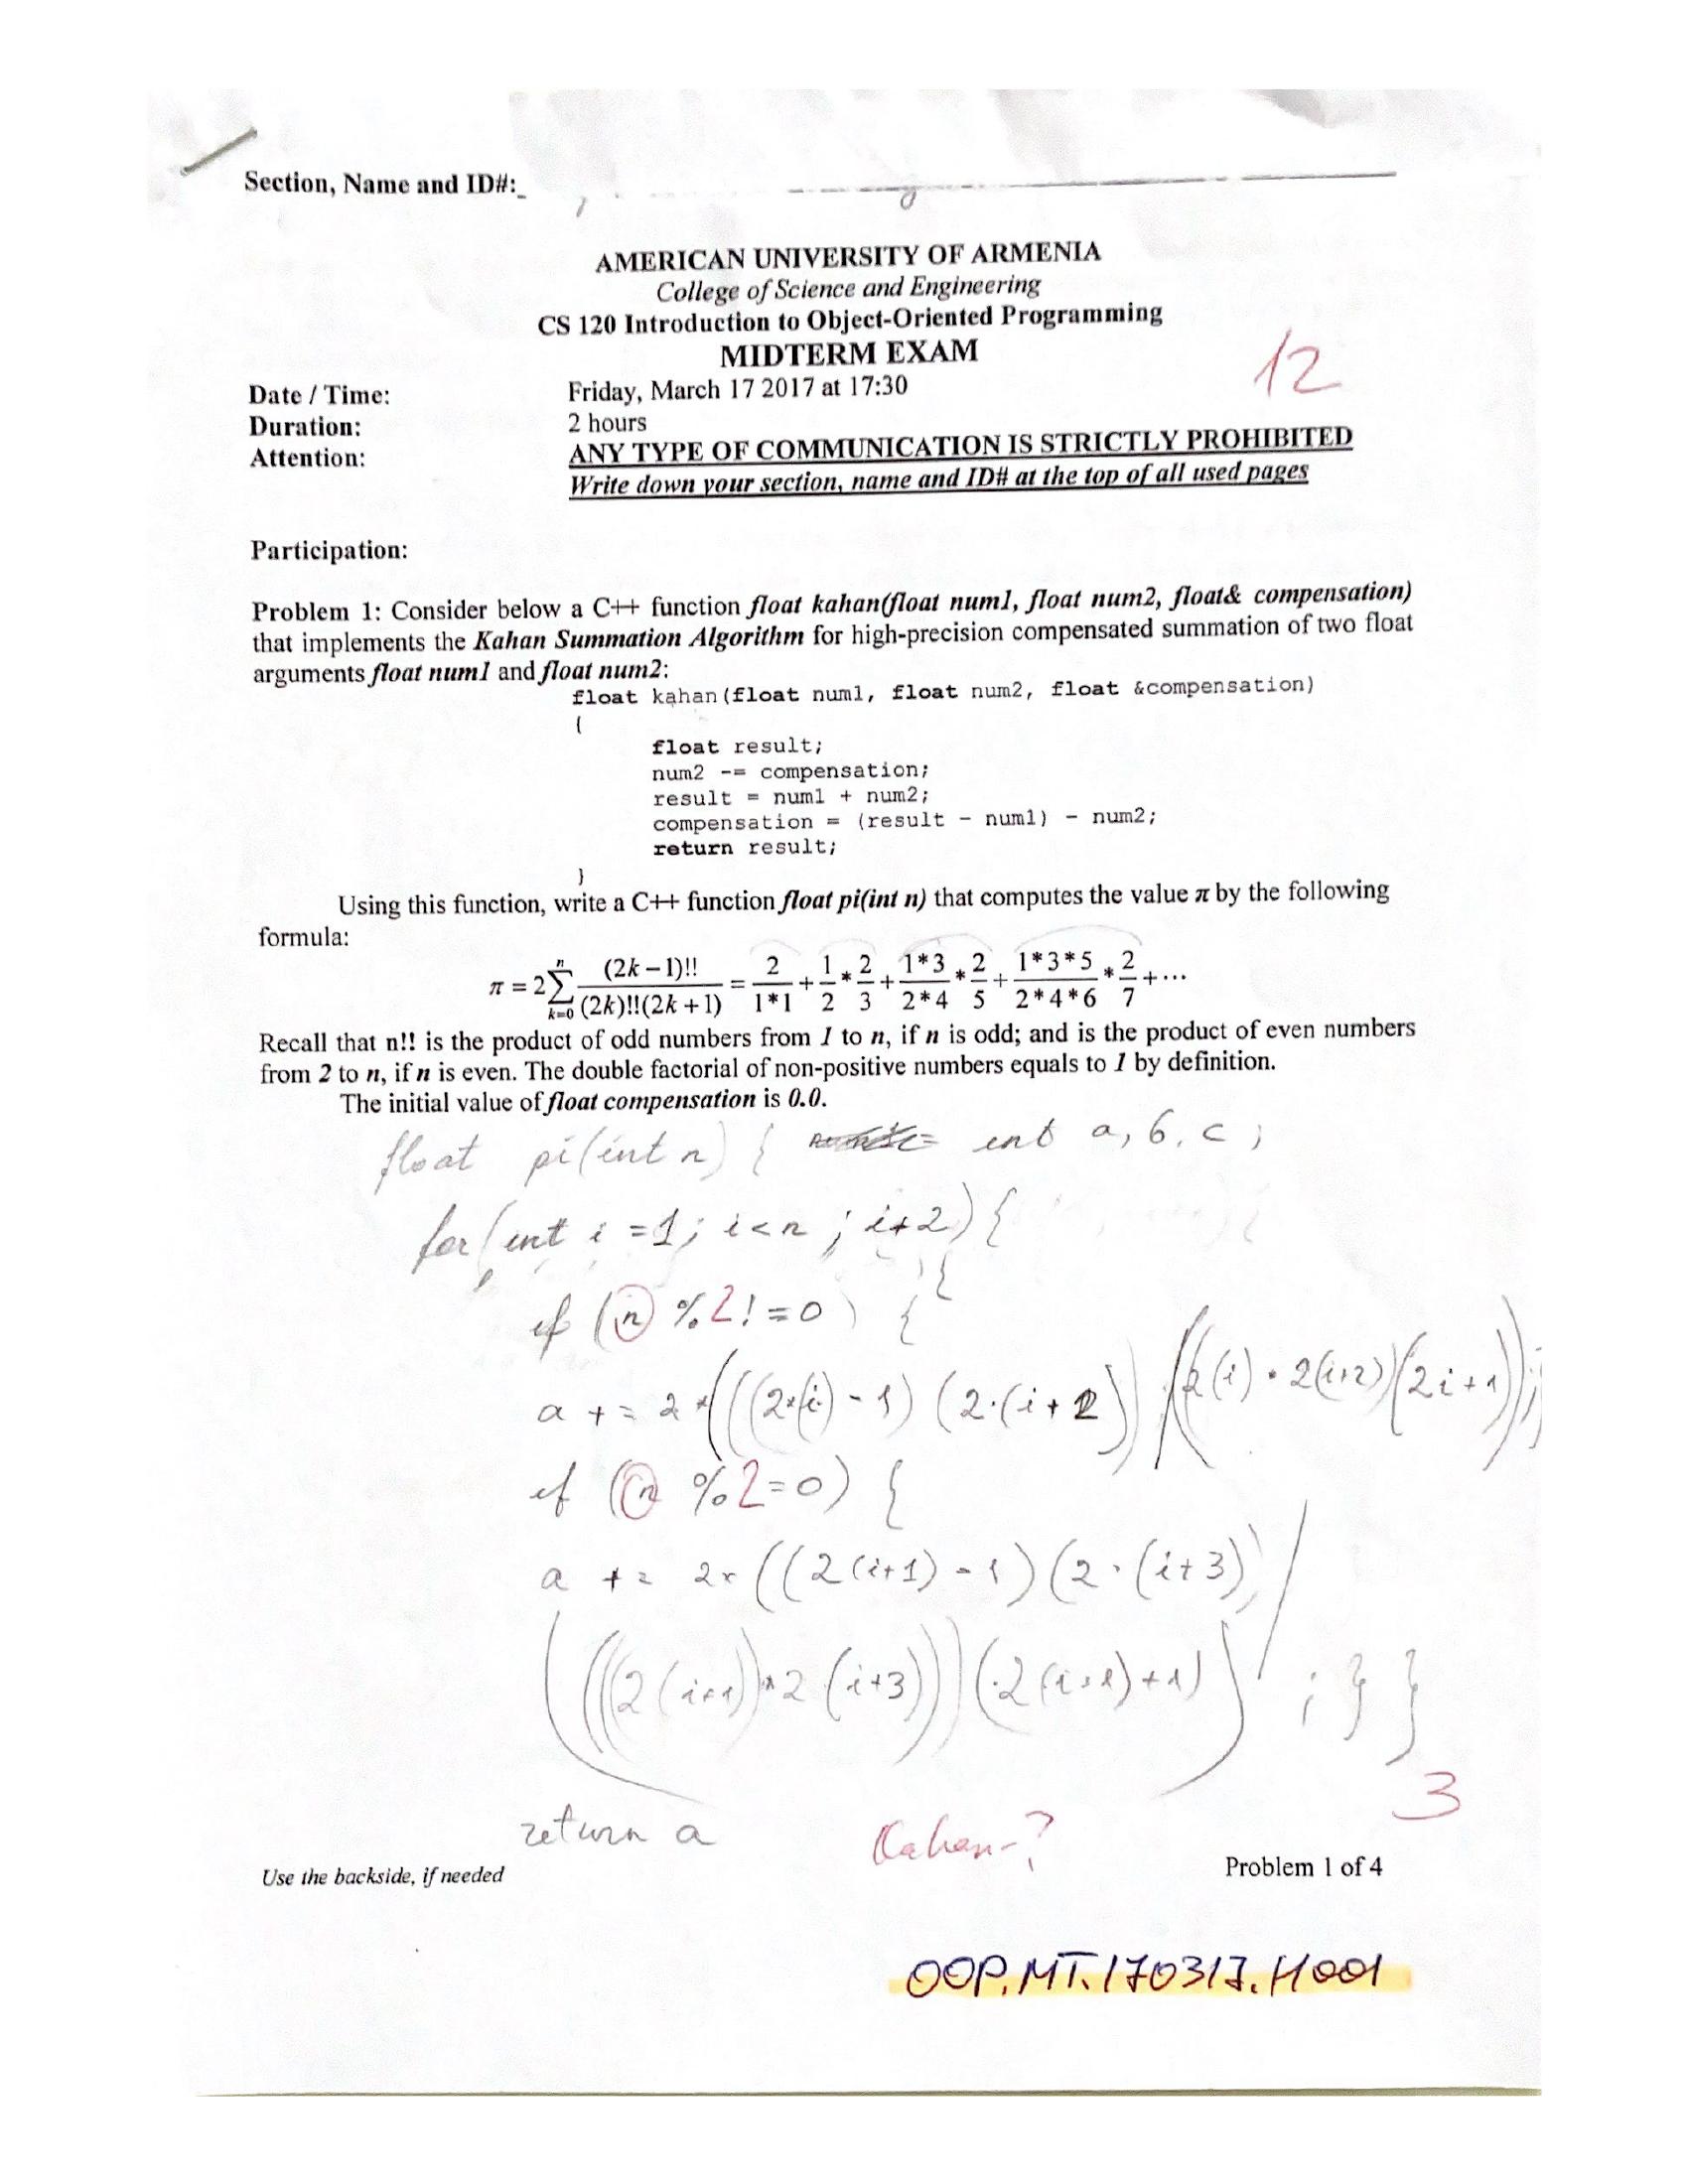 Section, Name and ID#:
AMERICAN UNIVERSITY OF ARMENIA
College of Science and Engineering
CS 120 Introduction to Object-Oriented Programming
MIDTERM EXAM
12
Date / Time: Friday, March 17 2017 at 17:30
Duration: 2 hours
Attention: ANY TYPE OF COMMUNICATION IS STRICTLY PROHIBITED
Write down your section, name and ID# at the top of all used pages
Participation:
Problem 1: Consider below a C++ function float kahan(float num1, float num2, float& compensation)
that implements the Kahan Summation Algorithm for high-precision compensated summation of two float
arguments float num1 and float num2:
float kahan(float num1, float num2, float &compensation)
{
float result;
num2 -= compensation;
result = num1 + num2;
compensation = (result - num1) - num2;
return result;
}
Using this function, write a C++ function float pi(int n) that computes the value π by the following
formula:
π = 2 ∑_{k=0}^{n} (2k-1)!! / ((2k)!!(2k+1)) = 2/(1*1) + 1/2 * 2/3 + (1*3)/(2*4) * 2/5 + (1*3*5)/(2*4*6) * 2/7 + ...
Recall that n!! is the product of odd numbers from 1 to n, if n is odd; and is the product of even numbers
from 2 to n, if n is even. The double factorial of non-positive numbers equals to 1 by definition.
The initial value of float compensation is 0.0.
float pi(int n) { int a, b, c;
for(int i = 1; i < n ; i+2) {
{
if (n %2! = 0) {
a += 2*(((2*(i) - 1) (2·(i + 2)) / ((2(i) · 2(i+2))(2i+1));
if (n %2=0) {
a += 2* ((2(i+1) - 1) (2 · (i+3)) /
(((2(i+1))*2(i+3)))(2(i+1)+1) ; } }
3
return a
Kahan-?
Use the backside, if needed
Problem 1 of 4
OOP.MT.170317.H001